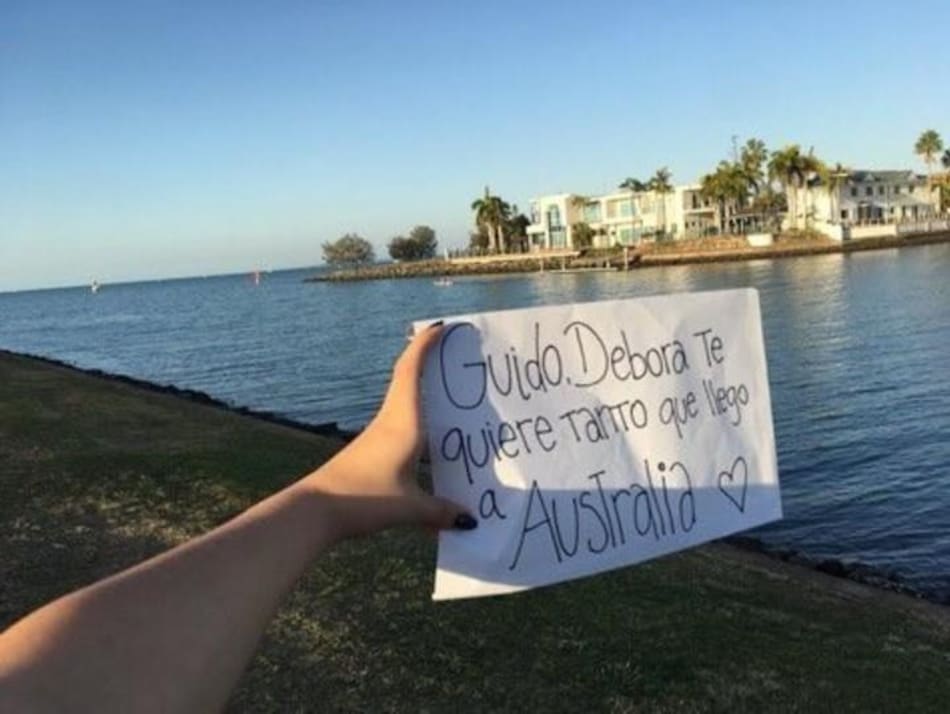 Guido. Debora Te
quiere tanto que llego
a Australia ♡